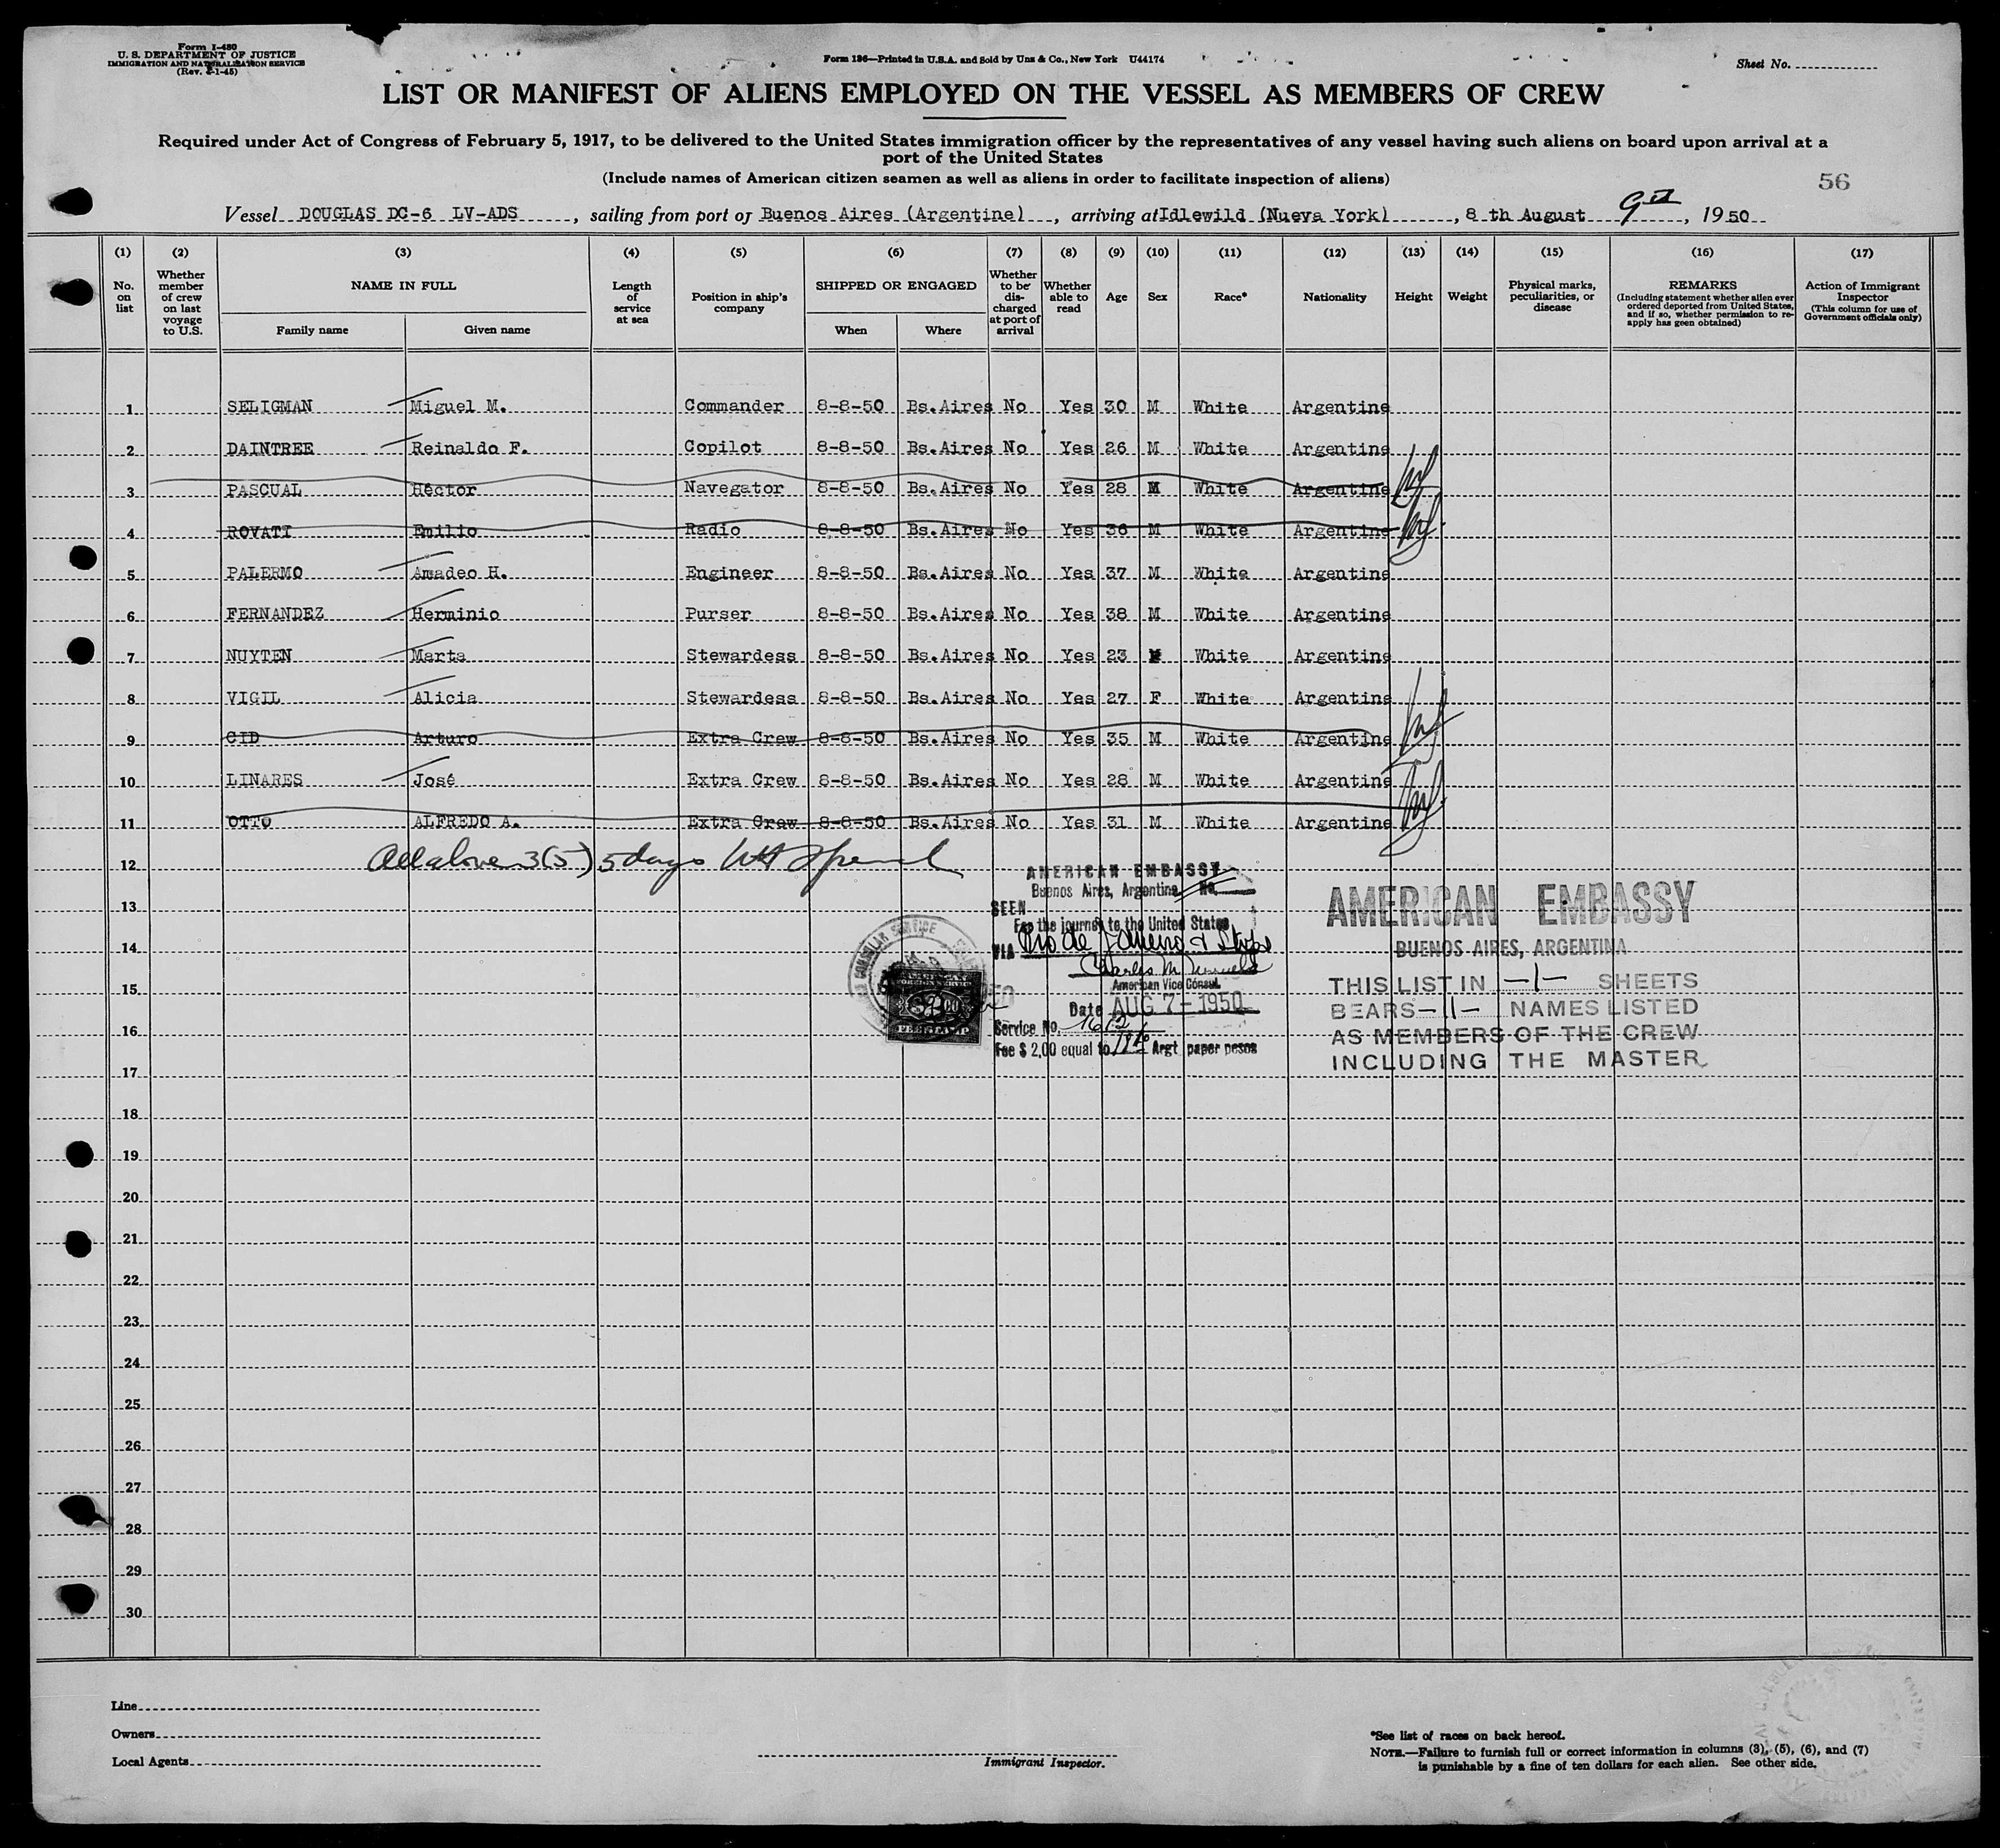 Form I-480
U. S. DEPARTMENT OF JUSTICE
IMMIGRATION AND NATURALIZATION SERVICE
(Rev. 2-1-45)
Form 186—Printed in U.S.A. and Sold by Unz & Co., New York U44174
Sheet No.
LIST OR MANIFEST OF ALIENS EMPLOYED ON THE VESSEL AS MEMBERS OF CREW
Required under Act of Congress of February 5, 1917, to be delivered to the United States immigration officer by the representatives of any vessel having such aliens on board upon arrival at a
port of the United States
(Include names of American citizen seamen as well as aliens in order to facilitate inspection of aliens)
56
Vessel DOUGLAS DC-6 LV-ADS, sailing from port of Buenos Aires (Argentine), arriving at Idlewild (Nueva York), 8 th August 9th, 1950
(1) (2) (3) (4) (5) (6) (7) (8) (9) (10) (11) (12) (13) (14) (15) (16) (17)
No. on list
Whether member of crew on last voyage to U.S.
NAME IN FULL
Family name
Given name
Length of service at sea
Position in ship's company
SHIPPED OR ENGAGED
When
Where
Whether to be dis-charged at port of arrival
Whether able to read
Age
Sex
Race*
Nationality
Height
Weight
Physical marks, peculiarities, or disease
REMARKS
(Including statement whether alien ever ordered deported from United States, and if so, whether permission to re-apply has geen obtained)
Action of Immigrant Inspector
(This column for use of Government officials only)
1 SELIGMAN Miguel M. Commander 8-8-50 Bs.Aires No Yes 30 M White Argentine
2 DAINTREE Reinaldo F. Copilot 8-8-50 Bs.Aires No Yes 26 M White Argentine
3 PASCUAL Héctor Navegator 8-8-50 Bs.Aires No Yes 28 M White Argentine
4 ROVATI Emilio Radio 8-8-50 Bs.Aires No Yes 36 M White Argentine
5 PALERMO Amadeo H. Engineer 8-8-50 Bs.Aires No Yes 37 M White Argentine
6 FERNANDEZ Herminio Purser 8-8-50 Bs.Aires No Yes 38 M White Argentine
7 NUYTEN Marta Stewardess 8-8-50 Bs.Aires No Yes 23 White Argentine
8 VIGIL Alicia Stewardess 8-8-50 Bs.Aires No Yes 27 F White Argentine
9 CID Arturo Extra Crew 8-8-50 Bs.Aires No Yes 35 M White Argentine
10 LINARES José Extra Crew 8-8-50 Bs.Aires No Yes 28 M White Argentine
11 OTTO ALFREDO A. Extra Crew 8-8-50 Bs.Aires No Yes 31 M White Argentine
12 All above 3(5) 5 days
13
14
15
16
17
18
19
20
21
22
23
24
25
26
27
28
29
30
AMERICAN EMBASSY
Buenos Aires, Argentine No.
SEEN
For the journey to the United States
VIA Rio de Janeiro &
Charles M
American Vice Consul
Date AUG 7 - 1950
Service No. 1612
Fee $ 2,00 equal to Argt. paper pesos
CONSULAR SERVICE
AMERICAN EMBASSY
BUENOS AIRES, ARGENTINA
THIS LIST IN -1- SHEETS
BEARS -11- NAMES LISTED
AS MEMBERS OF THE CREW
INCLUDING THE MASTER
Line
Owners
Local Agents
Immigrant Inspector.
*See list of races on back hereof.
NOTE.—Failure to furnish full or correct information in columns (3), (5), (6), and (7)
is punishable by a fine of ten dollars for each alien. See other side.